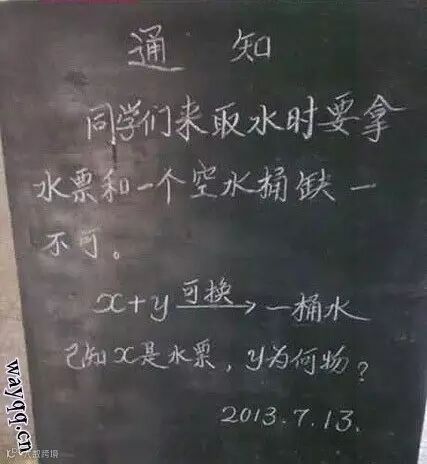 通 知
同学们来取水时要拿
水票和一个空水桶缺一
不可。
x+y 可换→ 一桶水
已知x是水票，y为何物？
2013.7.13.
wayqq.cn